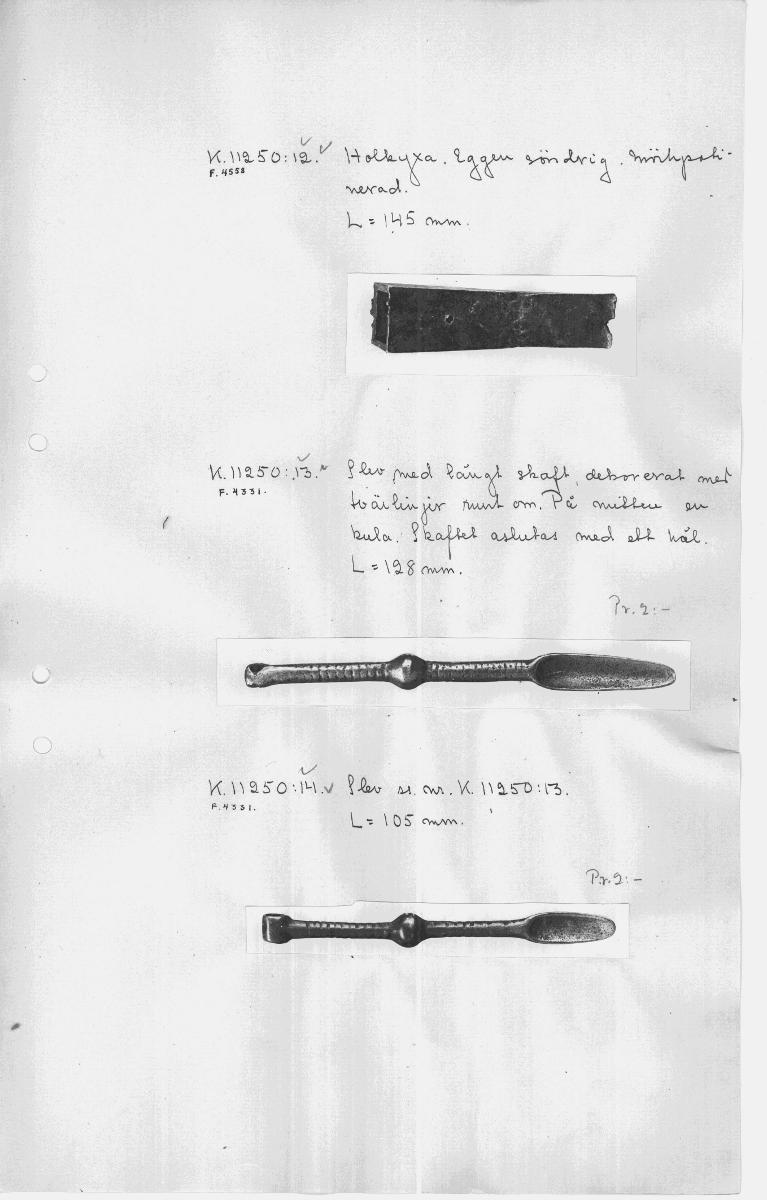 K.11250:12. Holkyxa. Eggen söndrig. Mörkpati-
F.4558
nerad.
L = 145 mm.
K.11250:13. Slev med långt skaft, dekorerat med
F.4331.
tvärlinjer runt om. På mitten en
kula. Skaftet aslutas med ett hål.
L = 128 mm.
Pr. 2:-
K.11250:14. Slev ss. nr. K.11250:13.
F.4331.
L = 105 mm.
Pr. 2:-